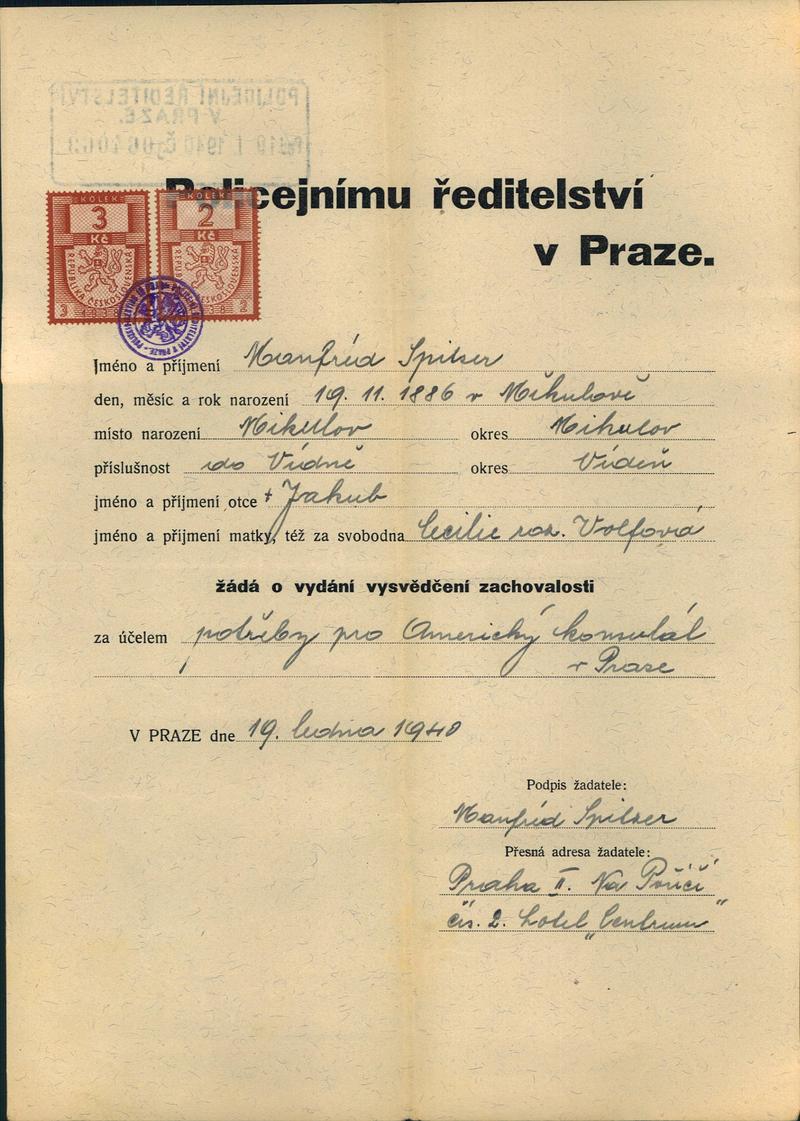 Policejnímu ředitelství
v Praze.
KOLEK
3
Kč
REPUBLIKA ČESKOSLOVENSKÁ
KOLEK
2
Kč
REPUBLIKA ČESKOSLOVENSKÁ
Jméno a příjmení Manfréd Spitzer
den, měsíc a rok narození 19. 11. 1886 v Mikulově
místo narození Mikulov okres Mikulov
příslušnost do Vídně okres Vídeň
jméno a příjmení otce + Jakub
jméno a příjmení matky, též za svobodna Cecilie roz. Volfová
žádá o vydání vysvědčení zachovalosti
za účelem potřeby pro Americký konsulát
v Praze
V PRAZE dne 19. ledna 1940
Podpis žadatele:
Manfréd Spitzer
Přesná adresa žadatele:
Praha II. Na Poříčí
čís. 2. hotel „Centrum"